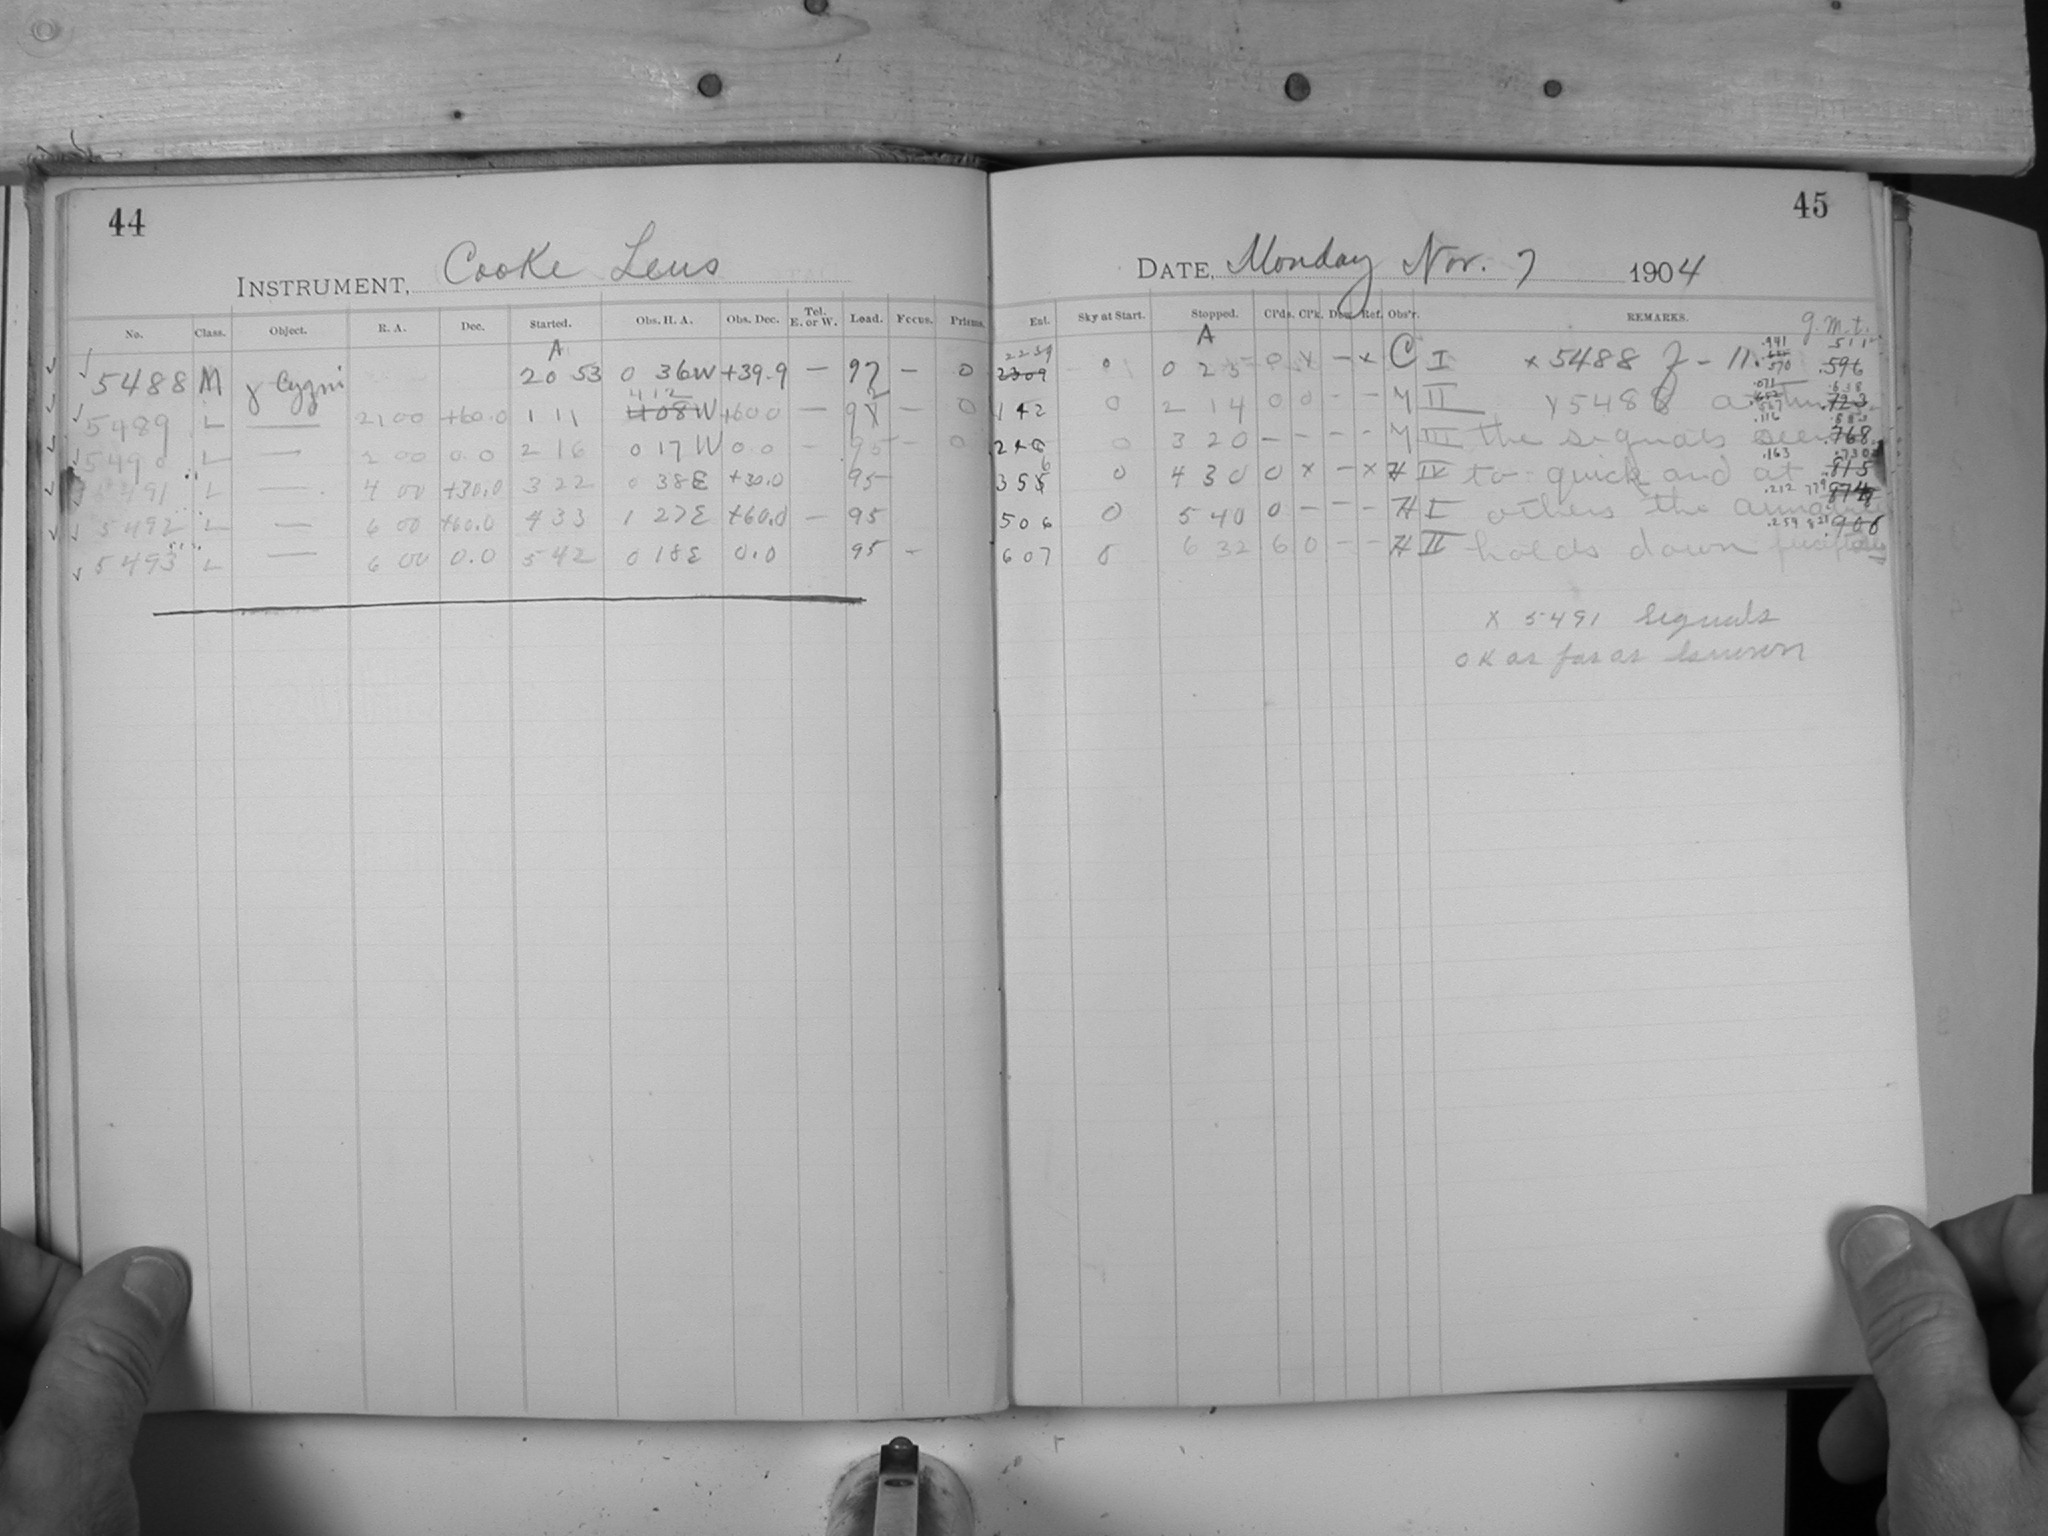 44
INSTRUMENT, Cooke Lens
No. Class. Object. R. A. Dec. Started. Obs. H. A. Obs. Dec. Tel. E. or W. Load. Focus. Prisms.
A
5488 M γ Cygni 20 53 0 36W +39.9 — 97 — 0
4 12
5489 L — 21 00 +60.0 1 11 4 08W +60.0 — — 0
5490 L — 2 00 0.0 2 16 0 17W 0.0 — 95 — 0
5491 L — 4 00 +30.0 3 22 0 38E +30.0 95
5492 L — 6 00 +60.0 4 33 1 27E +60.0 — 95
5493 L — 6 00 0.0 5 42 0 18E 0.0 95 -
45
DATE, Monday Nov. 7 1904
Ent. Sky at Start. Stopped. Cl'ds. Cl'k. Dew. Ref. Obs'r. REMARKS. g. m. t.
A
2239
2309 0 0 25 0 x — x C I x 5488 J - 11. .596
142 0 2 14 0 0 - - M II x 5488 at .723
246 0 3 20 - - - - M III the signals seem .768
355 0 4 30 0 x - x H IV to quick and at .815
506 0 5 40 0 - - - H I others the .874
607 0 6 32 6 0 - - H II holds down .906
x 5491 Signals
OK as far as known